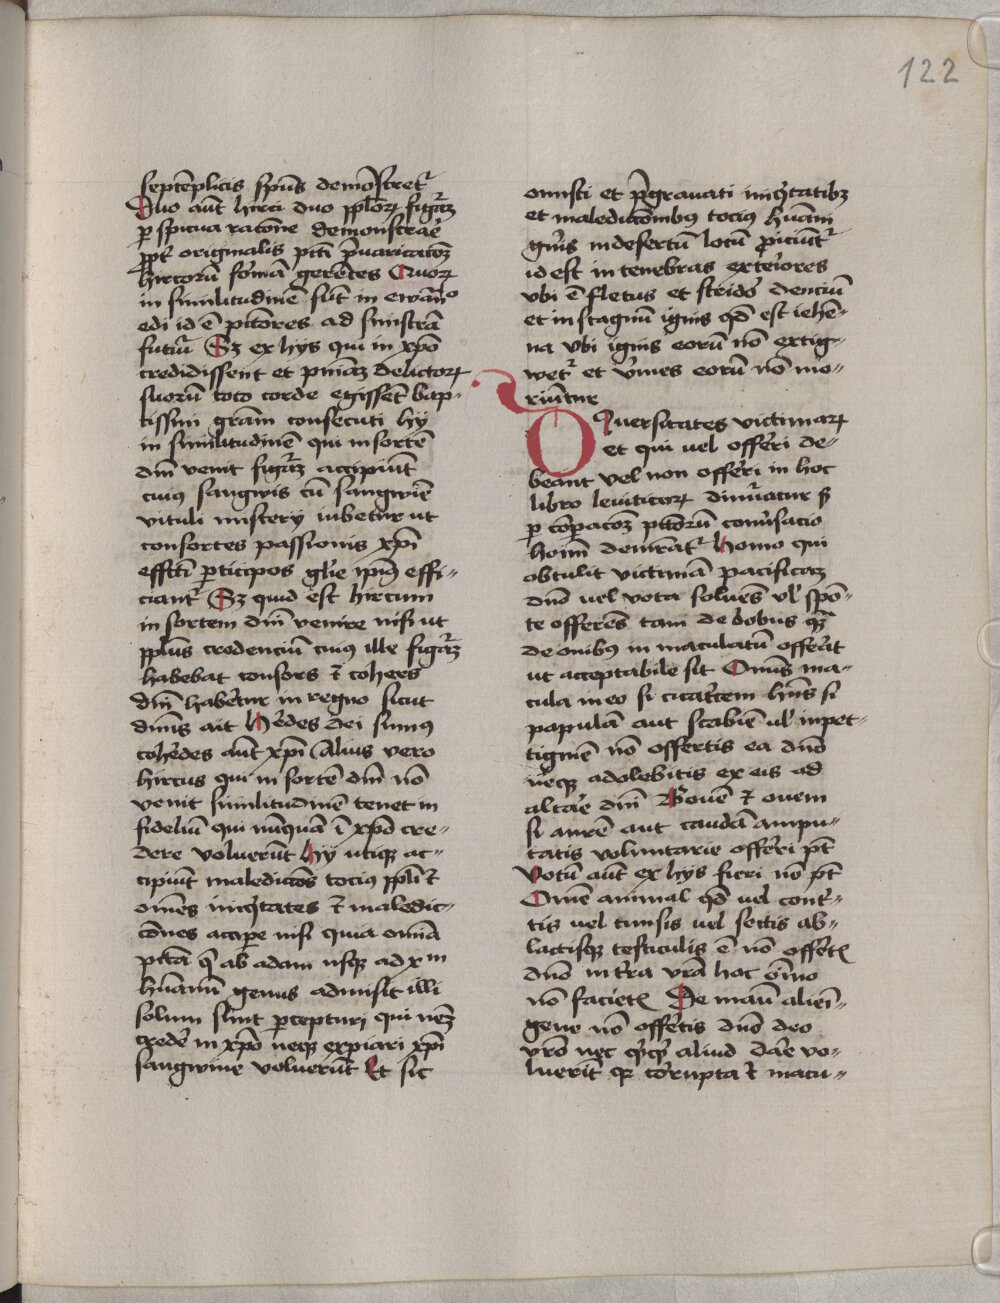 122
septēplicis spūs demōstret᷑
Duo aūt hirci duo pplōꝝ figurā
ꝑ spicua ratōne demonstrāt
ꝓpt᷑ originalis pctī p̄uaricatōꝫ
hircorū formā gerētes Quoꝝ
in similitudinē sūt in ewāⁱᵒ
edi id ē pctōres ad sinistrā
futuri Sꝫ ex hys qui in xp̄o
credidissent et pniāꝫ delictoꝝ
suorū toto corde egissēt bap-
tissmi grām consecuti hy
in similitudinē qui in sortē
dn̄i venit figurā accipiūt
cuiꝰ sangwis cū sangwiē
vituli mistery iubetur ut
consortes passionis xp̄i
effcti ꝑticipes glīe ip̄iꝰ effi-
ciant᷑ Sꝫ quid est hircum
in sortem dn̄i venire nisi ut
pplūs credenciū cuiꝰ ille figurā
habebat consors ⁊ coheres
dn̄i habētur in regno sicut
dn̄us ait Hēdes dei sumꝰ
cohēdes aūt xp̄i Alius vero
hircus qui in sortē dn̄i nō
venit similitudinē tenet in
fideliū qui nūquā ī xp̄o cre-
dere voluerūt hij utiqꝫ ac-
cipiūt maledictōes tociꝰ ppli ⁊
omēs iniqͥtates ⁊ maledic-
tōnes accipe nisi quia omīa
pctā q̄ ab adam usqꝫ ad xᵐ
hūanū genus admisit illi
solum sūnt ꝑcepturi qui neqꝫ
crede᷑ in xp̄o neqꝫ expiari xp̄i
sangwine voluerūt Et sic
onusti et p̄grauati iniqͥtatibꝫ
et maledictōnibus tociꝰ hūani
gn̄is in desertū locū ꝓiciūt᷑
id est in tenebras exteriores
vbi ē fletus et stridō denciū
et in stagnū ignis qd̄ est iehē-
na vbi ignis eorū nō extig-
wet᷑ et v̄mes eorū nō mo-
riūntur
Diuersitates victimaꝝ
et qui uel offerri de-
beant vel non offerri in hoc
libro leuiticoꝝ dinūatur sꝫ
ꝑ cōpacōꝫ pctōrū conūsacio
hoīm demrāt᷑ Homo qui
obtulit victimā pacificoꝫ
dn̄o uel vota soluēs ul̄ spō-
te offerēs tam de bobus qͣꝫ
de ouibꝰ in maculatū offerit
ut acceptabile sit Omīs ma-
cula in eo si cicatcem hn̄s si
papulā aut scabiē ul̄ inpet-
tiginē nō offertis ea dn̄o
neqꝫ adolebitis ex eis ad
altae dn̄i Bouē ⁊ ouem
si aurē aut caudā ampu-
tatis voluntarie offerri pt̄
Votū aūt ex hys fieri nō pt̄
Omē animal qd̄ uel cont᷑-
tis uel tunsis uel sectis ab-
latisqꝫ testiculis ē nō offetꝭ
dn̄o in tr̄ra vrā hoc ōino
nō facietꝭ De manū aliēi-
gene nō offetis dn̄o deo
vrō nec qͥcqͥ aliud dae vo-
luerīt qꝛ corrupta ⁊ macu-